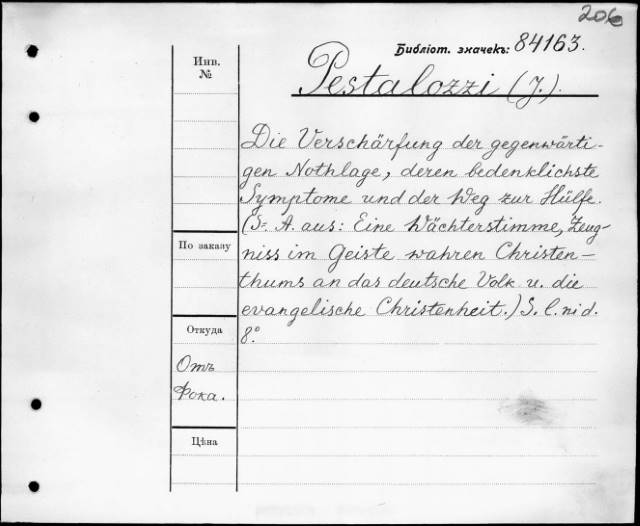 206
Библіот. значекъ: 84163.
Инв.
№
Pestalozzi (J.).
Die Verschärfung der gegenwärti-
gen Nothlage, deren bedenklichste
Symptome und der Weg zur Hülfe.
(S. A. aus: Eine Wächterstimme, Zeug-
niss im Geiste wahren Christen-
thums an das deutsche Volk u. die
evangelische Christenheit.) S. l. ni d.
8°.
По заказу
Откуда
Отъ
Фока.
Цѣна